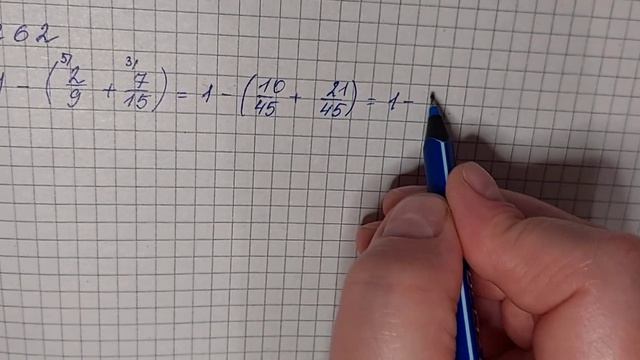 262
1 - (⁵⁾2/9 + ³⁾7/15) = 1 - (10/45 + 21/45) = 1 -